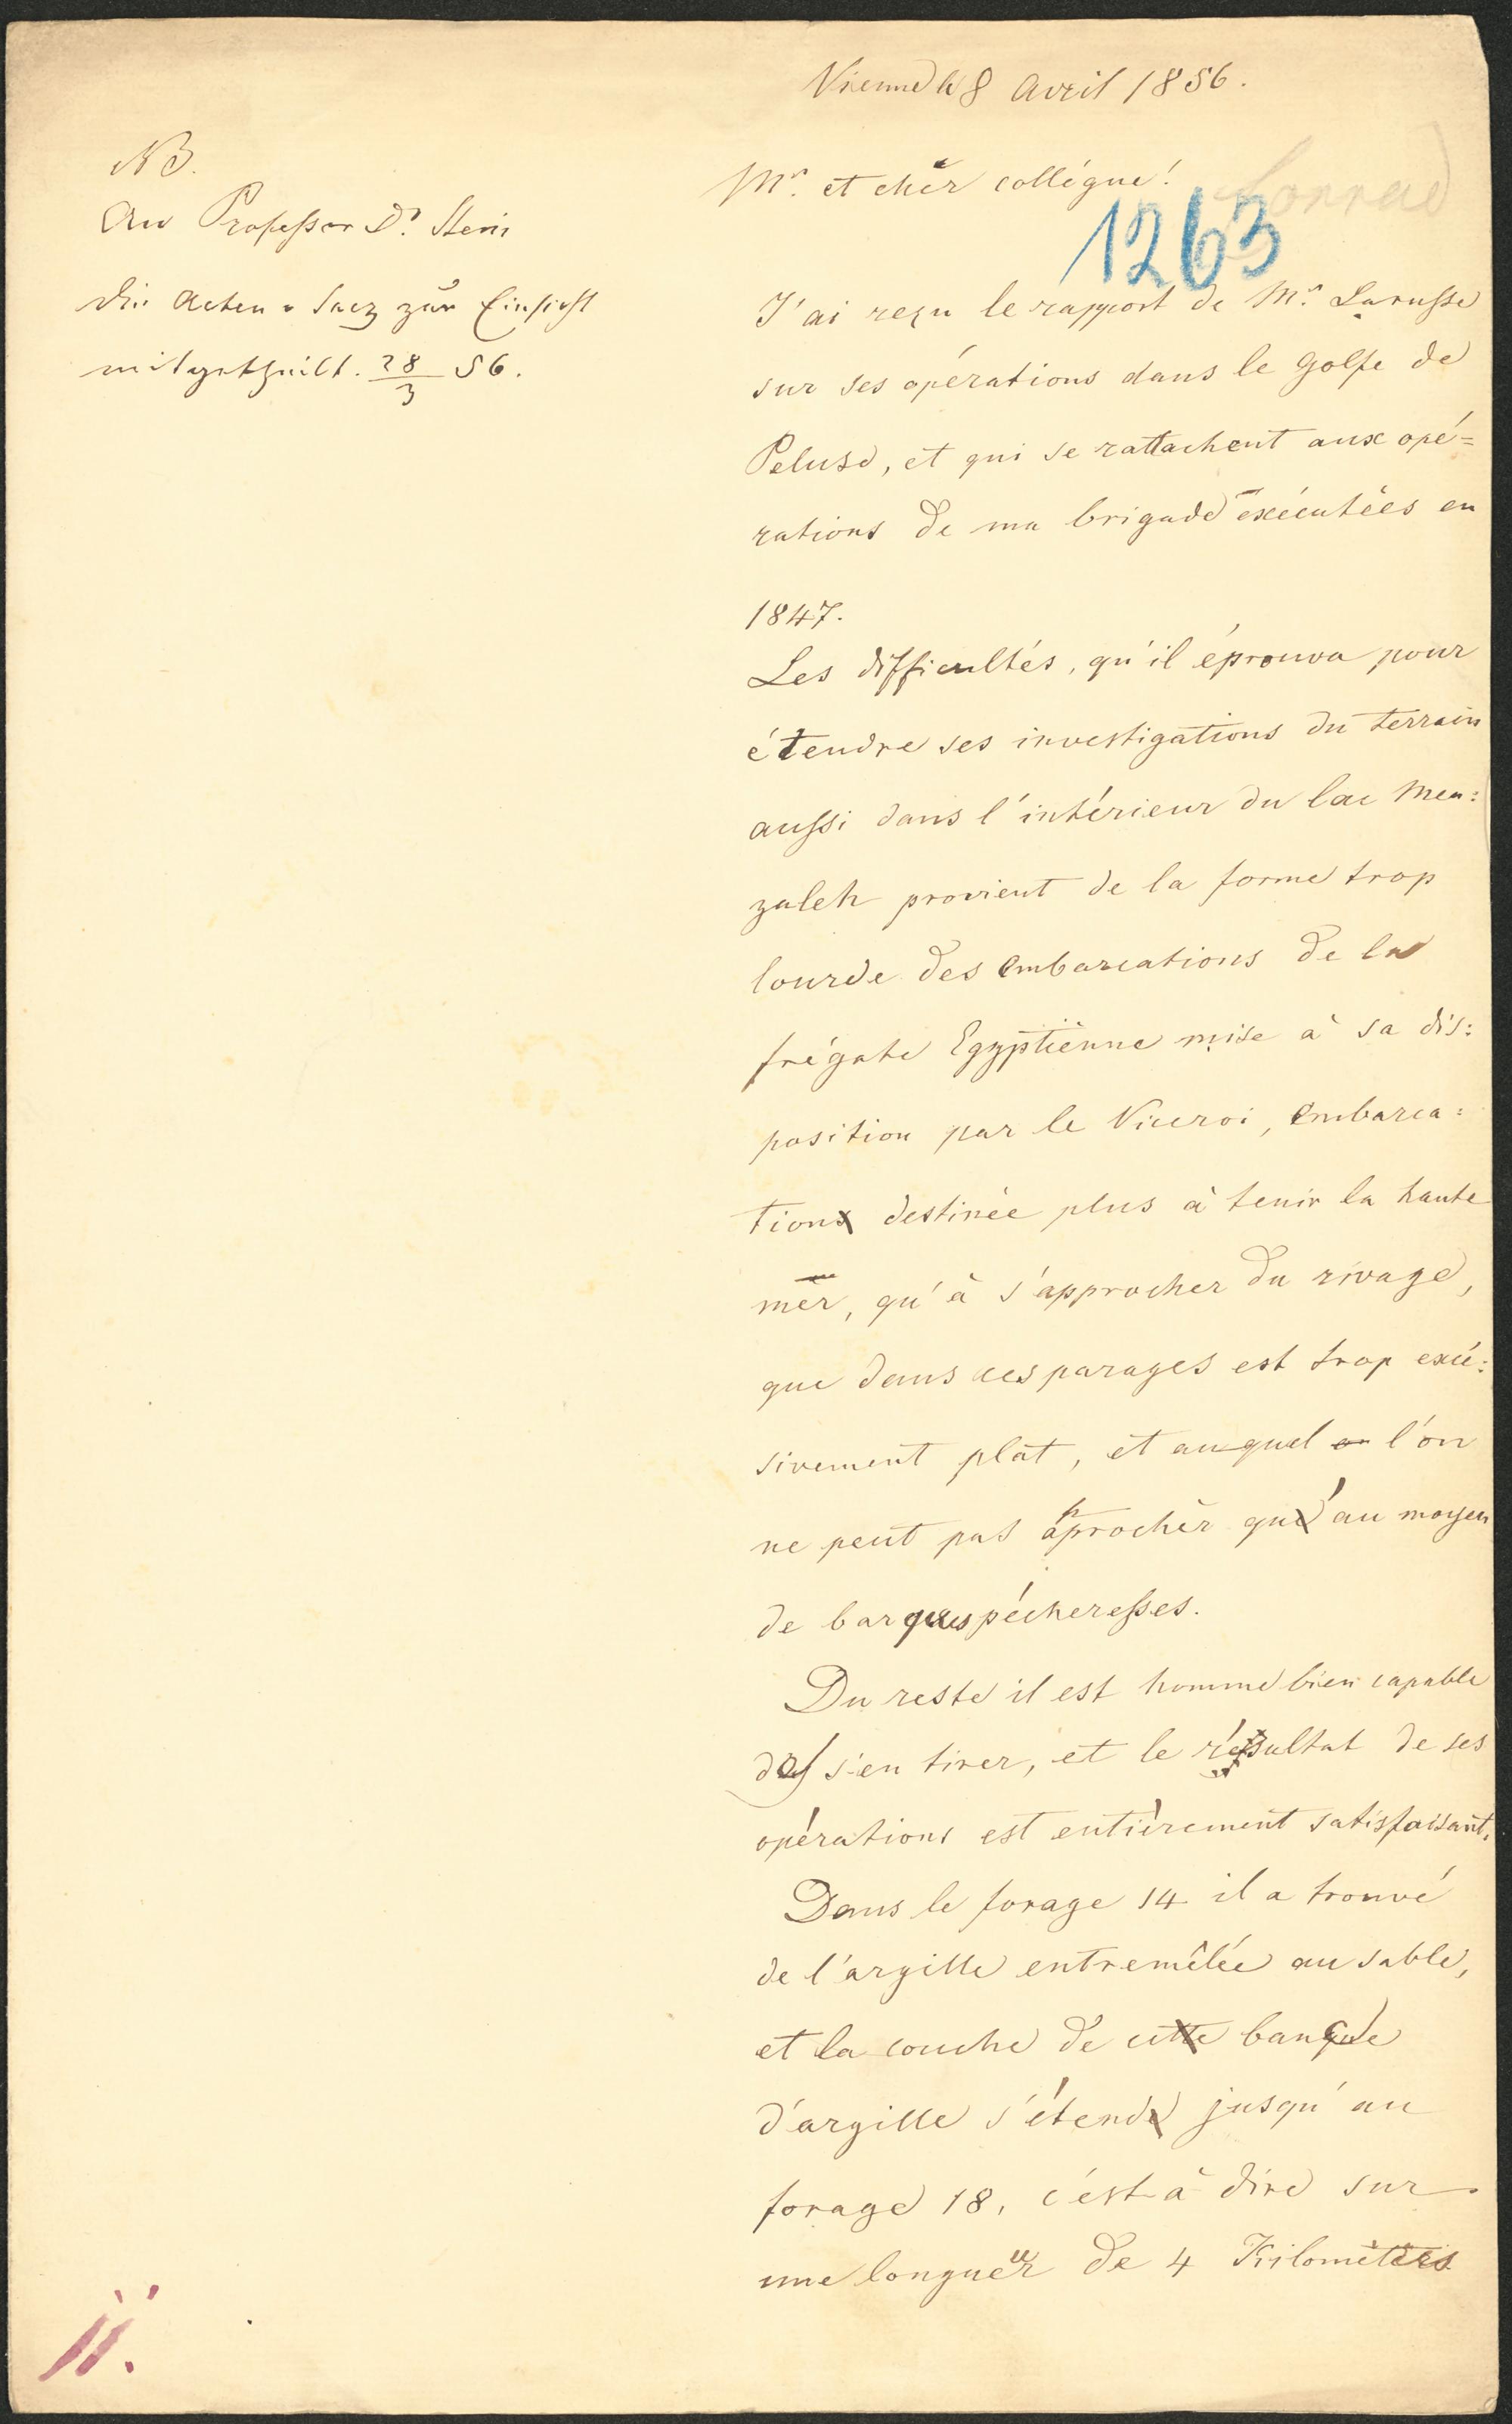 Vienne le 8 Avril 1856.
NB.
An Professor Dr. Stein
die Acten Suez zur Einsicht
mitgetheilt. 28/3 56.
Mr. et cher collégue!
Conrad
1263
J'ai reçu le rapport de Mr. Larusse
sur ses opérations dans le Golfe de
Peluse, et qui se rattachent aux opé=
rations de ma brigade exécutées en
1847.
Les difficultés, qu'il éprouva pour
étendre ses investigations du terrain
aussi dans l'intérieur du lac Men:
zaleh provient de la forme trop
lourde des embarcations de la
frégate Egyptienne mise à sa dis:
position par le Viceroi, embarca:
tion destinée plus à tenir la haute
mer, qu'à s'approcher du rivage,
que dans ces parages est trop excé:
sivement plat, et auquel l'on
ne peut pas approcher qu'au moyen
de barques pécheresses.
Du reste il est homme bien capable
de s'en tirer, et le résultat de ses
opérations est entièrement satisfaisant.
Dans le forage 14 il a trouvé
de l'argille entremêlée au sable,
et la couche de ce banc
d'argille s'étend jusqu'au
forage 18, c'est à dire sur
une longueur de 4 Kilomèters
II.